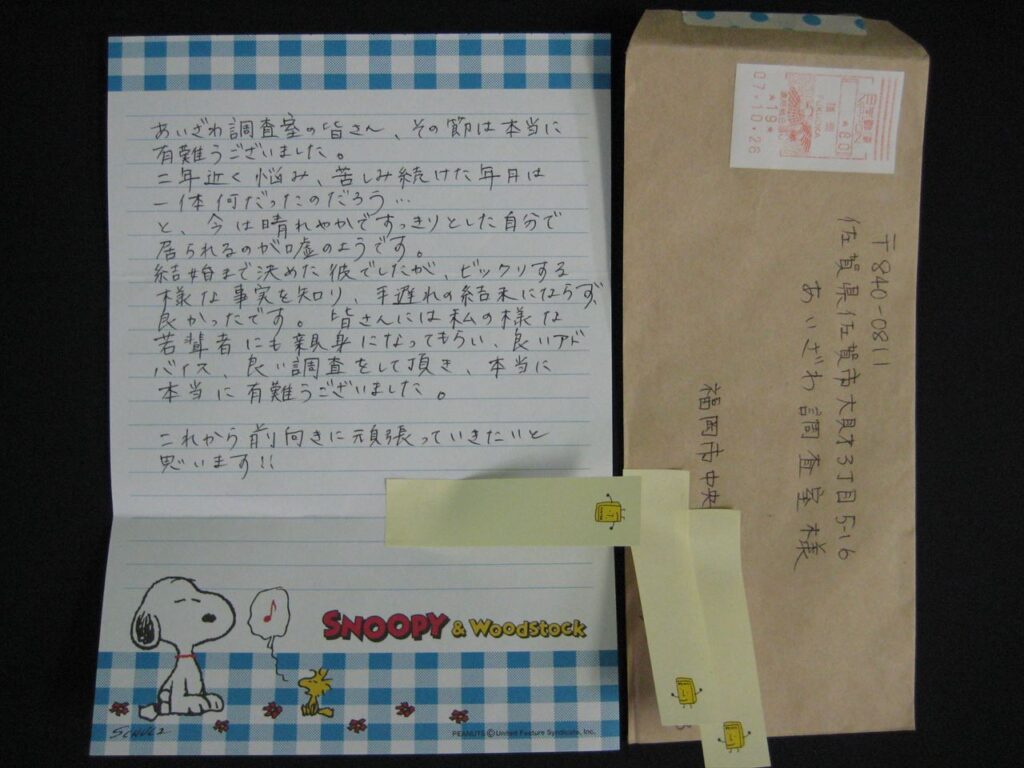 あいざわ調査室の皆さん、その節は本当に
有難うございました。
二年近く悩み、苦しみ続けた年月は
一体何だったのだろう…
と、今は晴れやかですっきりとした自分で
居られるのが嘘のようです。
結婚まで決めた彼でしたが、ビックリする
様な事実を知り、手遅れの結末にならず、
良かったです。皆さんには私の様な
若輩者にも親身になってもらい、良いアド
バイス、良い調査をして頂き、本当に
本当に有難うございました。
これから前向きに頑張っていきたいと
思います!!
SNOOPY & WOODSTOCK
SCHULZ
PEANUTS © United Feature Syndicate, Inc.
日本郵便
NIPPON
80
福岡
FUKUOKA
19
07.10.26
〒840-0811
佐賀県佐賀市大財3丁目5-16
あいざわ調査室様
福岡市中央